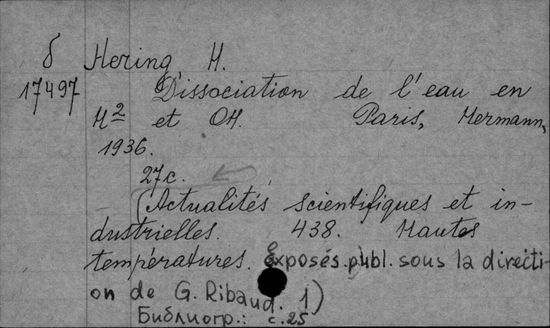 δ Hering H.
17497 Dissociation de l'eau en
H² et OH. Paris, Hermann,
1936.
27c.
(Actualités scientifiques et in-
dustrielles. 438. Hautes
températures. Exposés publ. sous la directi-
on de G. Ribaud. 1)
Библиогр.: с.25